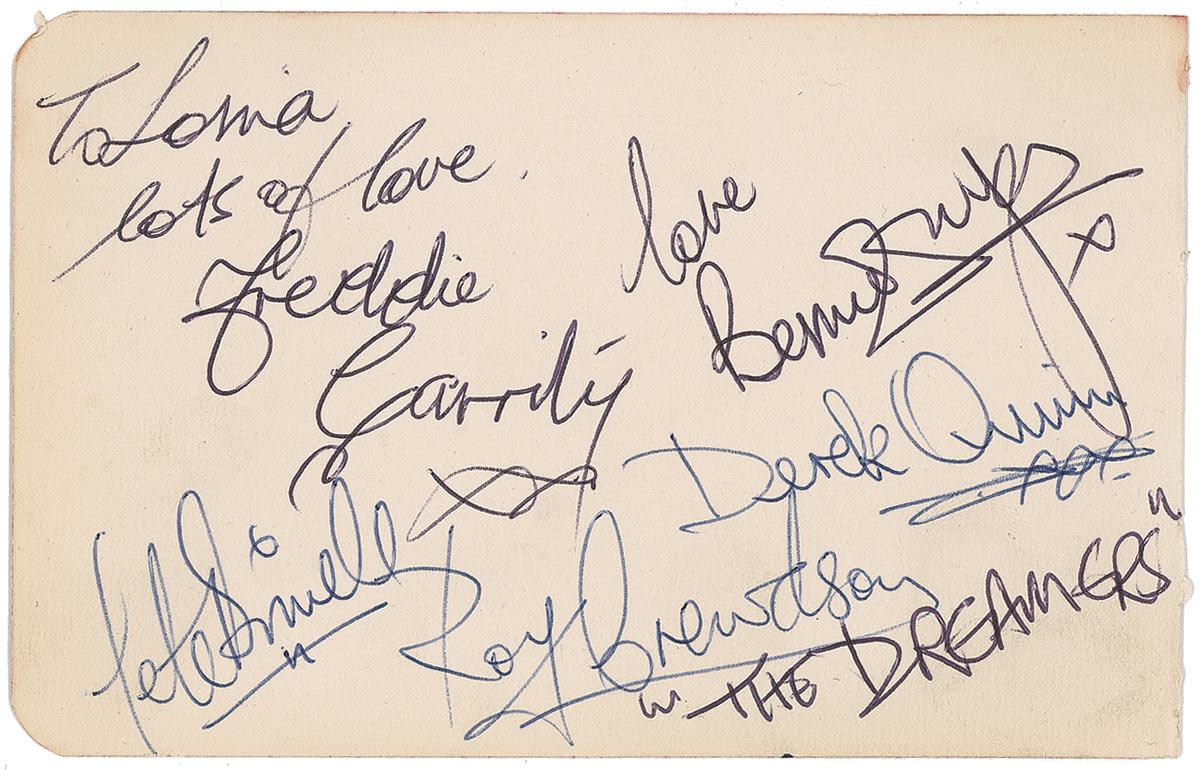 To Lorna
lots of love.
Freddie
Garrity
love
Bernie Dwyer x
Derek Quinn
xxx
Pete Birrell x
Roy Crewdson
"THE DREAMERS"